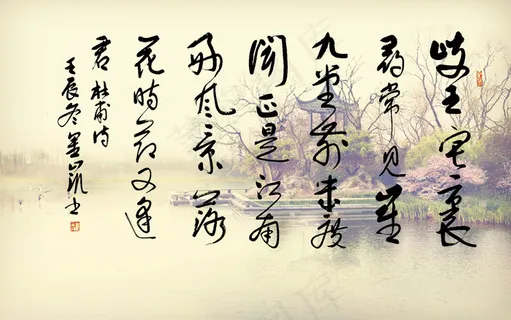 岐王宅裏
尋常見崔
九堂前幾度
聞正是江南
好风景落
花時節又逢
君 杜甫诗
壬辰冬